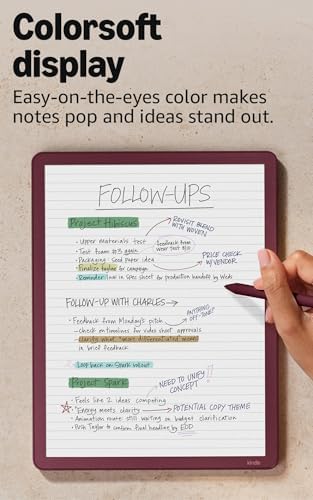 Colorsoft
display
Easy-on-the-eyes color makes
notes pop and ideas stand out.
FOLLOW-UPS
Project Hibiscus
REVISIT BLEND
WITH WOVEN
• Upper materials test
• Test foam
Feedback from
wear test
• Packaging: Seed paper idea
PRICE CHECK
W/VENDOR
• Finalize tagline for campaign
• Reminder: low in spec sheet for production handoff by Weds
FOLLOW-UP WITH CHARLES →
• Feedback from Monday's pitch
ANYTHING
OFF TONE?
- check on timelines for video shoot approvals
- clarify what "more differentiated" means
in brief feedback
• Loop back on Spark rollout
Project Spark
NEED TO UNIFY
CONCEPT
• Feels like 2 ideas competing
• "Energy meets clarity" → POTENTIAL COPY THEME
• Animation route still waiting on budget clarification
• Push Taylor to confirm final headline by EOD
kindle